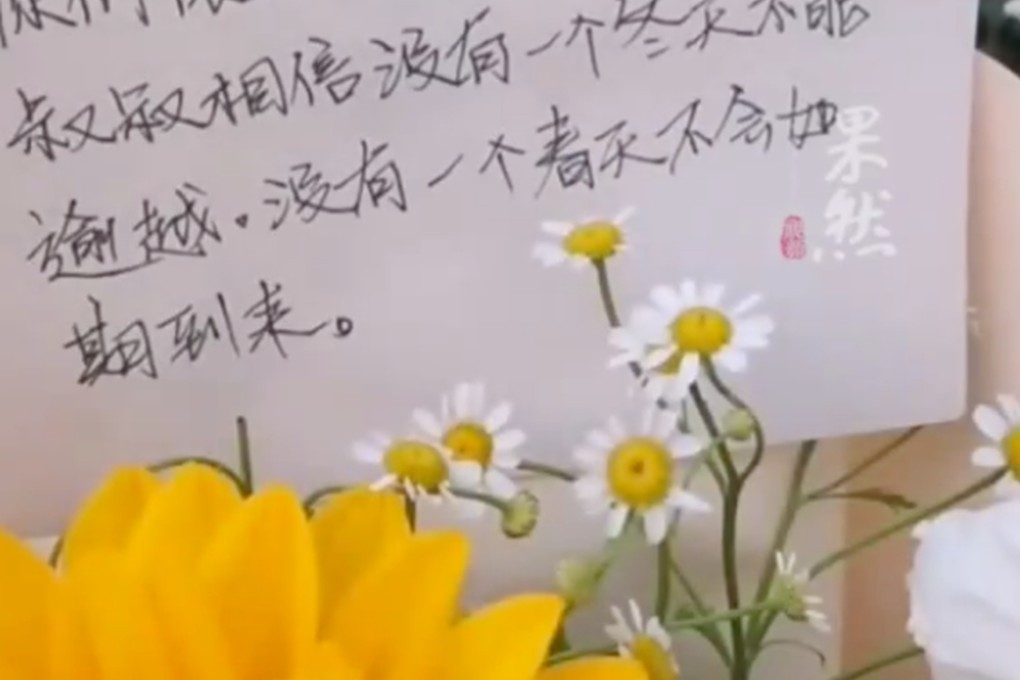 叔叔相信没有一个冬天不能
逾越.没有一个春天不会如
期到来。
果然